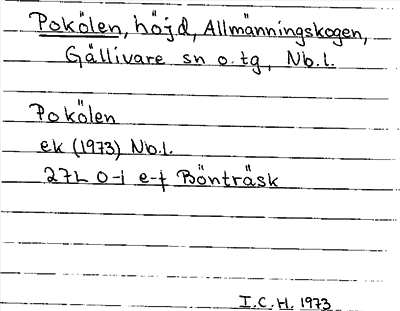 Pokölen, höjd, Allmänningskogen,
Gällivare sn o. tg, Nb.l.
Pokölen
ek (1973) Nb.l.
27L 0-1 e-f Bönträsk
I.C.H. 1973